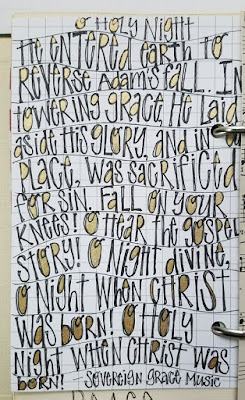 O Holy Night
He entered earth to
reverse Adam's fall. In
towering grace, He laid
aside His glory, and in our
place, was sacrificed
for sin. Fall on your
knees! O hear the gospel
story! O night divine,
O night when Christ
was born! O Holy
night when Christ was
born! Sovereign Grace Music